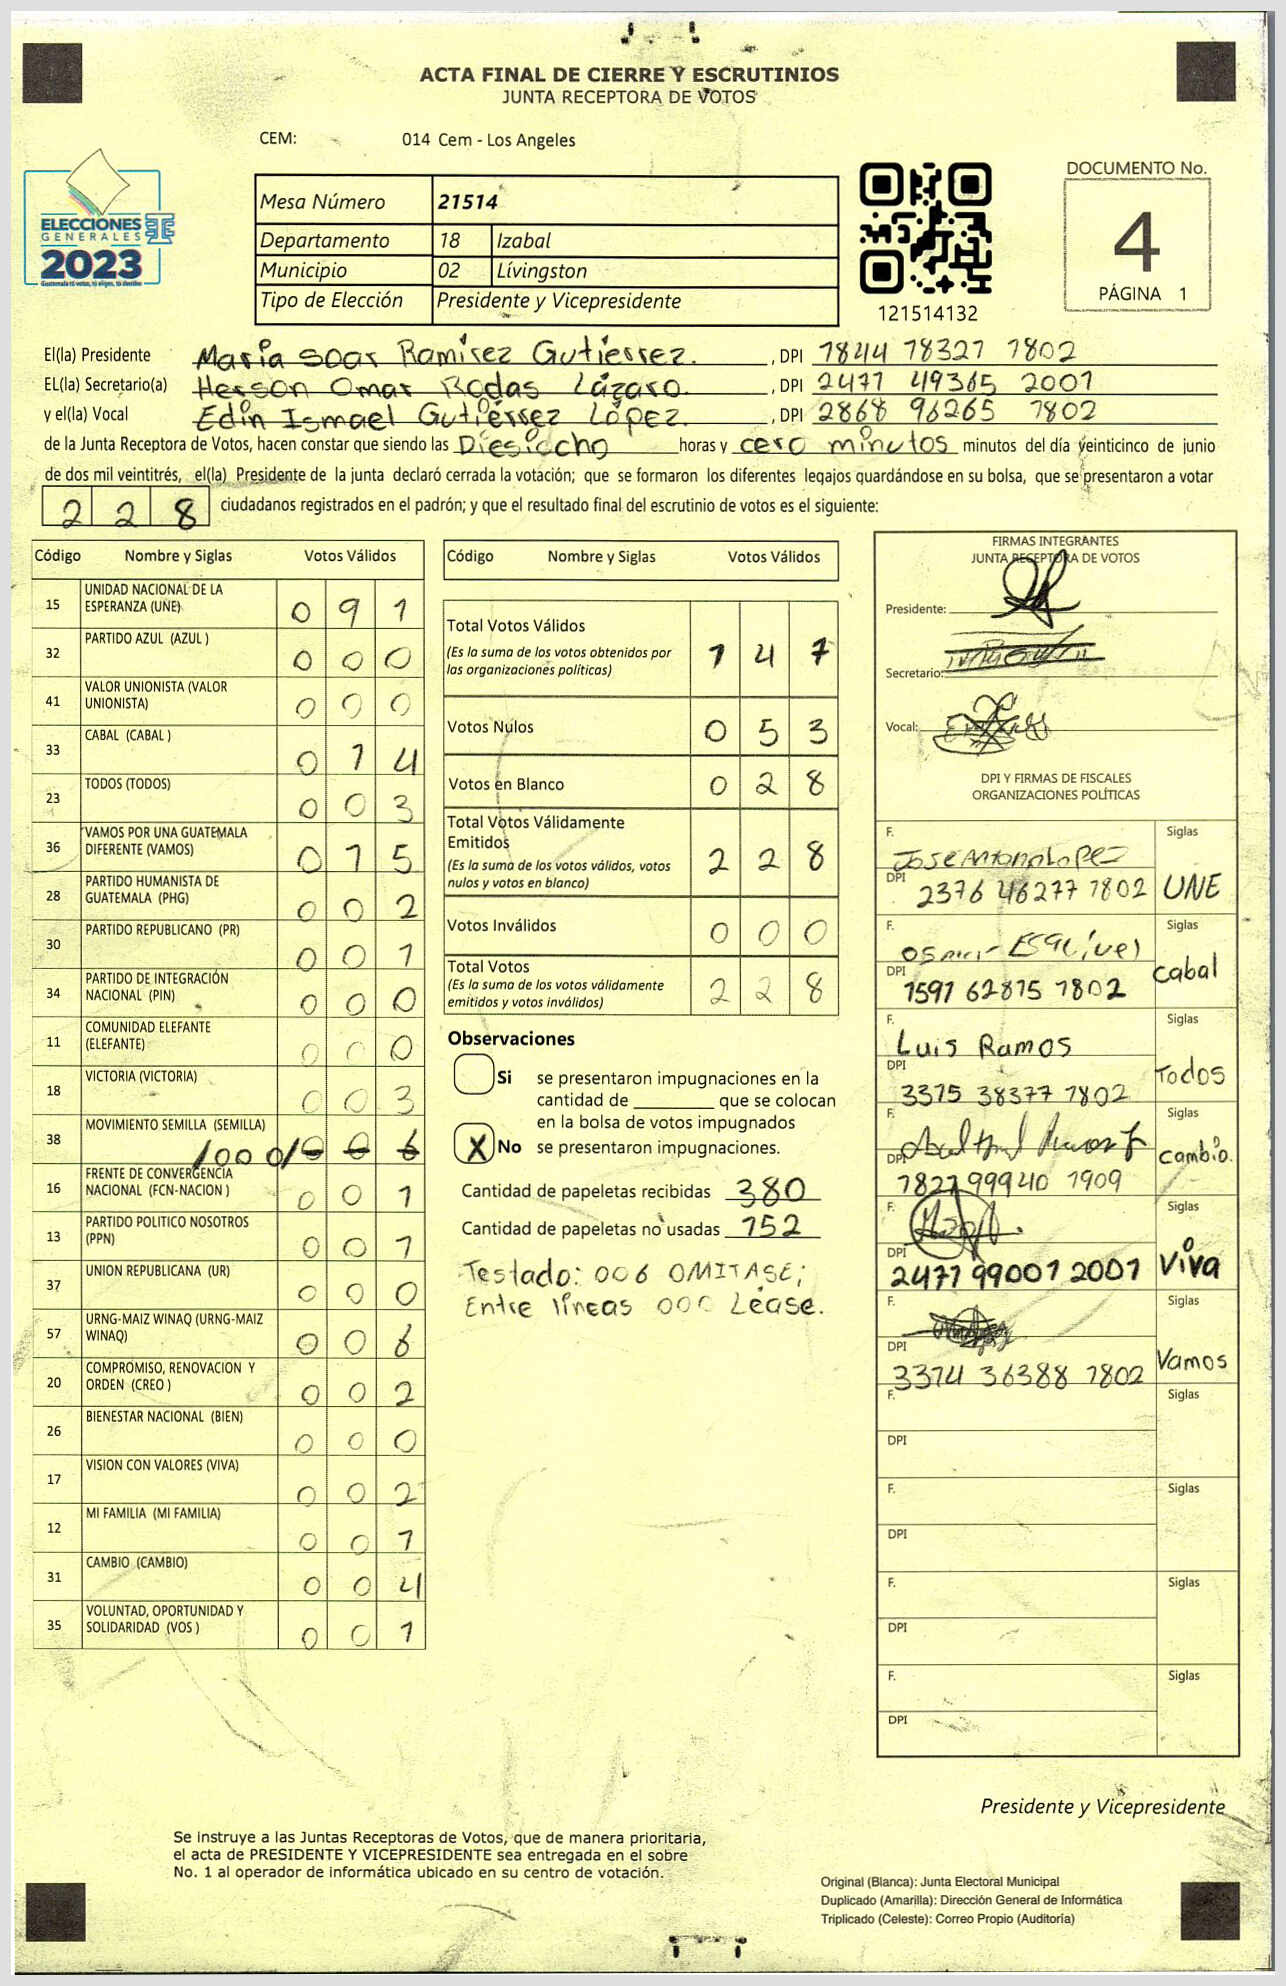 ACTA FINAL DE CIERRE Y ESCRUTINIOS
JUNTA RECEPTORA DE VOTOS
CEM: 014 Cem - Los Angeles
ELECCIONES
GENERALES
2023
Guatemala tú votas, tú eliges, tú decides
Mesa Número 21514
Departamento 18 Izabal
Municipio 02 Lívingston
Tipo de Elección Presidente y Vicepresidente
121514132
DOCUMENTO No.
4
PÁGINA 1
El(la) Presidente María soar Ramirez Gutierrez. , DPI 1844 78327 1802
EL(la) Secretario(a) Herson Omar Rodas Lázaro. , DPI 2477 49365 2001
y el(la) Vocal Edin Ismael Gutiérrez López. , DPI 2868 96265 1802
de la Junta Receptora de Votos, hacen constar que siendo las Diesiocho horas y cero minutos minutos del día veinticinco de junio
de dos mil veintitrés, el(la) Presidente de la junta declaró cerrada la votación; que se formaron los diferentes legajos guardándose en su bolsa, que se presentaron a votar
228 ciudadanos registrados en el padrón; y que el resultado final del escrutinio de votos es el siguiente:
Código Nombre y Siglas Votos Válidos
15 UNIDAD NACIONAL DE LA ESPERANZA (UNE) 0 9 1
32 PARTIDO AZUL (AZUL ) 0 0 0
41 VALOR UNIONISTA (VALOR UNIONISTA) 0 0 0
33 CABAL (CABAL ) 0 1 4
23 TODOS (TODOS) 0 0 3
36 VAMOS POR UNA GUATEMALA DIFERENTE (VAMOS) 0 1 5
28 PARTIDO HUMANISTA DE GUATEMALA (PHG) 0 0 2
30 PARTIDO REPUBLICANO (PR) 0 0 1
34 PARTIDO DE INTEGRACIÓN NACIONAL (PIN) 0 0 0
11 COMUNIDAD ELEFANTE (ELEFANTE) 0 0 0
18 VICTORIA (VICTORIA) 0 0 3
38 MOVIMIENTO SEMILLA (SEMILLA) /000/ 0 0 6
16 FRENTE DE CONVERGENCIA NACIONAL (FCN-NACION ) 0 0 1
13 PARTIDO POLITICO NOSOTROS (PPN) 0 0 1
37 UNION REPUBLICANA (UR) 0 0 0
57 URNG-MAIZ WINAQ (URNG-MAIZ WINAQ) 0 0 6
20 COMPROMISO, RENOVACION Y ORDEN (CREO ) 0 0 2
26 BIENESTAR NACIONAL (BIEN) 0 0 0
17 VISION CON VALORES (VIVA) 0 0 2
12 MI FAMILIA (MI FAMILIA) 0 0 1
31 CAMBIO (CAMBIO) 0 0 4
35 VOLUNTAD, OPORTUNIDAD Y SOLIDARIDAD (VOS ) 0 0 1
Código Nombre y Siglas Votos Válidos
Total Votos Válidos 1 4 7
(Es la suma de los votos obtenidos por
las organizaciones políticas)
Votos Nulos 0 5 3
Votos en Blanco 0 2 8
Total Votos Válidamente
Emitidos 2 2 8
(Es la suma de los votos válidos, votos
nulos y votos en blanco)
Votos Inválidos 0 0 0
Total Votos 2 2 8
(Es la suma de los votos válidamente
emitidos y votos inválidos)
Observaciones
Si se presentaron impugnaciones en la
cantidad de ________ que se colocan
en la bolsa de votos impugnados
X No se presentaron impugnaciones.
Cantidad de papeletas recibidas 380
Cantidad de papeletas no usadas 152
Testado: 006 OMITASE;
Entre líneas 000 Léase.
FIRMAS INTEGRANTES
JUNTA RECEPTORA DE VOTOS
Presidente:
Secretario:
Vocal:
DPI Y FIRMAS DE FISCALES
ORGANIZACIONES POLÍTICAS
F. Jose Antonio Lopez Siglas
DPI 2376 46277 1802 UNE
F. Esquivel Siglas
DPI 1591 62815 1802 Cabal
F. Luis Ramos Siglas
DPI 3375 38377 1802 Todos
F. Siglas
DPI 1827 99940 1909 Cambio.
F. Siglas
DPI 2477 99001 2001 Viva
F. Siglas
DPI 3374 36388 1802 Vamos
F. Siglas
DPI
F. Siglas
DPI
F. Siglas
DPI
F. Siglas
DPI
Presidente y Vicepresidente
Se instruye a las Juntas Receptoras de Votos, que de manera prioritaria,
el acta de PRESIDENTE Y VICEPRESIDENTE sea entregada en el sobre
No. 1 al operador de informática ubicado en su centro de votación.
Original (Blanca): Junta Electoral Municipal
Duplicado (Amarilla): Dirección General de Informática
Triplicado (Celeste): Correo Propio (Auditoría)